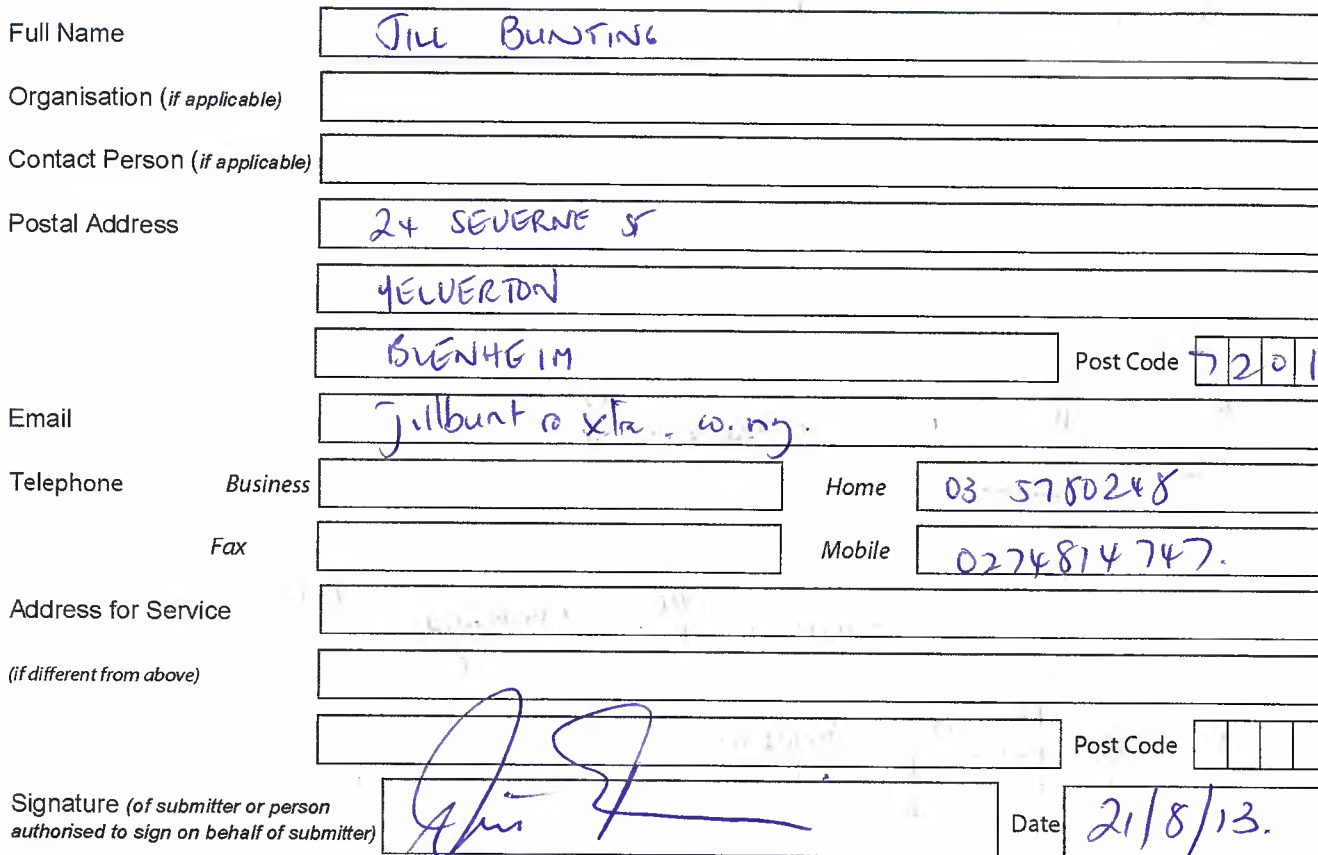 Full Name JILL BUNTING
Organisation (if applicable)
Contact Person (if applicable)
Postal Address 24 SEVERNE ST
YELVERTON
BLENHEIM Post Code 7201
Email jillbunt@xtra.co.nz.
Telephone Business Home 03 5780248
Fax Mobile 0274814747.
Address for Service
(if different from above)
Post Code
Signature (of submitter or person
authorised to sign on behalf of submitter) Date 21/8/13.